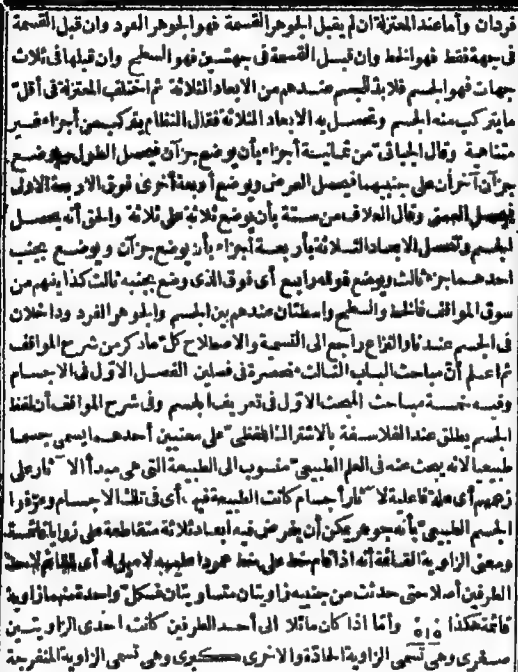 فردان وأما عند المعتزلة ان لم يقبل الجوهر القسمة فهو الجوهر الفرد وان قبل القسمة
فى جهة فقط فهو الخط وان قبل القسمة فى جهتين فهو السطح وان قبلها فى ثلاث
جهات فهو الجسم فلا بد للجسم عندهم من الابعاد الثلاثة ثم اختلف المعتزلة فى أقل
ما يتركب منه الجسم وتحصل به الابعاد الثلاثة فقال النظام يتركب من أجزاء غير
متناهية وقال الجبائى من ثمانية أجزاء بأن يوضع جزآن فيحصل الطول ويوضع
جزآن آخران على جنبيهما فيحصل العرض ويوضع أربعة أخرى فوق الاربعة الاولى
فيحصل العمق وقال العلاف من ستة بأن يوضع ثلاثة على ثلاثة والحق أنه يحصل
الجسم وتحصل الابعاد الثلاثة بأربعة أجزاء بأن يوضع جزآن ويوضع بجنب
احدهما جزء ثالث ويوضع فوقه رابع أى فوق الذى وضع بجنبه ثالث كذا يفهم من
سوق المواقف فالخط والسطح واسطتان عندهم بين الجسم والجوهر الفرد وداخلان
فى الجسم عندنا والنزاع راجع الى التسمية والاصطلاح كل ما ذكر من شرح المواقف
ثم اعلم أن مباحث الباب الثالث منحصرة فى فصلين الفصل الاول فى الاجسام
وفيه خمسة مباحث المبحث الاول فى تعريف الجسم وفى شرح المواقف أن لفظ
الجسم يطلق عند الفلاسفة بالاشتراك اللفظى على معنيين أحدهما يسمى جسما
طبيعيا لانه يبحث عنه فى العلم الطبيعى منسوب الى الطبيعة التى هى مبدأ الآثار على
زعمهم أى علة فاعلية لآثار أجسام كانت الطبيعة فيه أى فى تلك الاجسام وعرفوا
الجسم الطبيعى بأنه جوهر يمكن أن يفرض فيه ابعاد ثلاثة متقاطعة على زوايا قائمة
ومعنى الزاوية القائمة أنه اذا قام خط على خط عمودا عليه لا ميل له أى للقائم لاحد
الطرفين أصلا حتى حدثت من جنبيه زاويتان متساويتان فكل واحدة منهما زاوية
قائمة هكذا وأما اذا كان مائلا الى أحد الطرفين كانت احدى الزاويتين
صغرى وهى تسمى الزاوية الحادة والاخرى كبرى وهى تسمى الزاوية المنفرجة